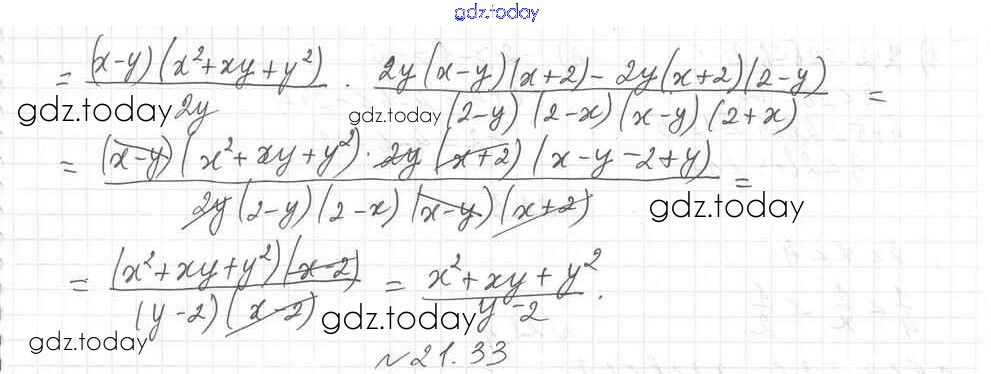 gdz.today
= (x-y)(x²+xy+y²) / 2y · 2y(x-y)(x+2) - 2y(x+2)(2-y) / (2-y)(2-x)(x-y)(2+x) =
gdz.today gdz.today
= (x-y)(x²+xy+y²)·2y(x+2)(x-y-2+y) / 2y(2-y)(2-x)(x-y)(x+2) =
gdz.today
= (x²+xy+y²)(x-2) / (y-2)(x-2) = x²+xy+y² / y-2 .
gdz.today gdz.today
№21.33